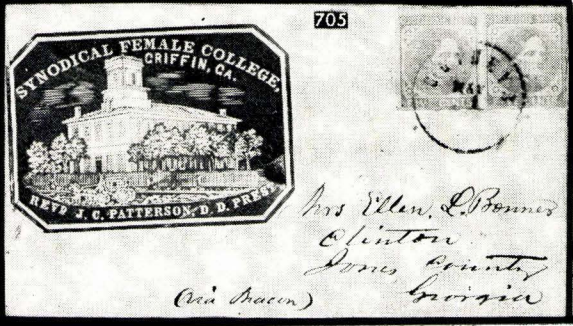 705
SYNODICAL FEMALE COLLEGE,
GRIFFIN, GA.
REVD J. C. PATTERSON, D. D. PREST
MAY
Mrs Ellen. L. Bonner
Clinton
Jones County
Georgia
(via Macon)